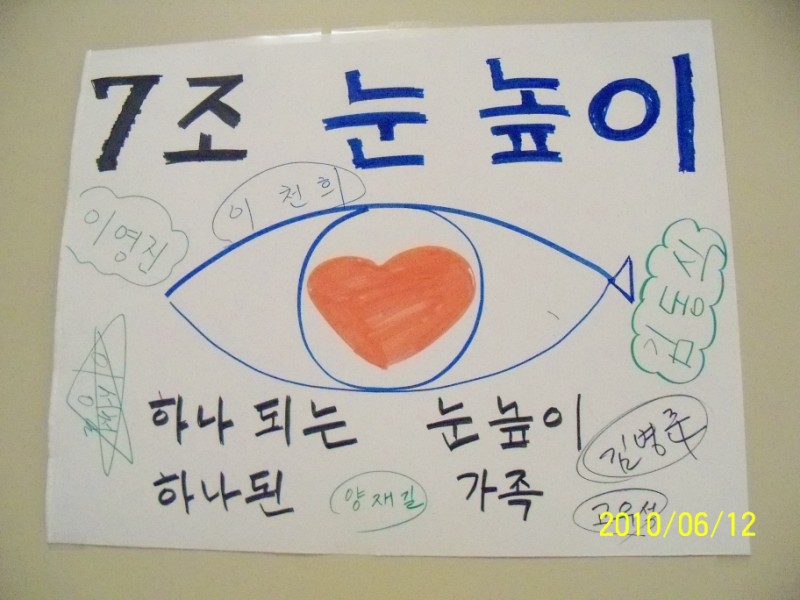 7조 눈높이
이천희
이영진
김동식
하나되는 눈높이
김병준
하나된 가족
양재길
2010/06/12